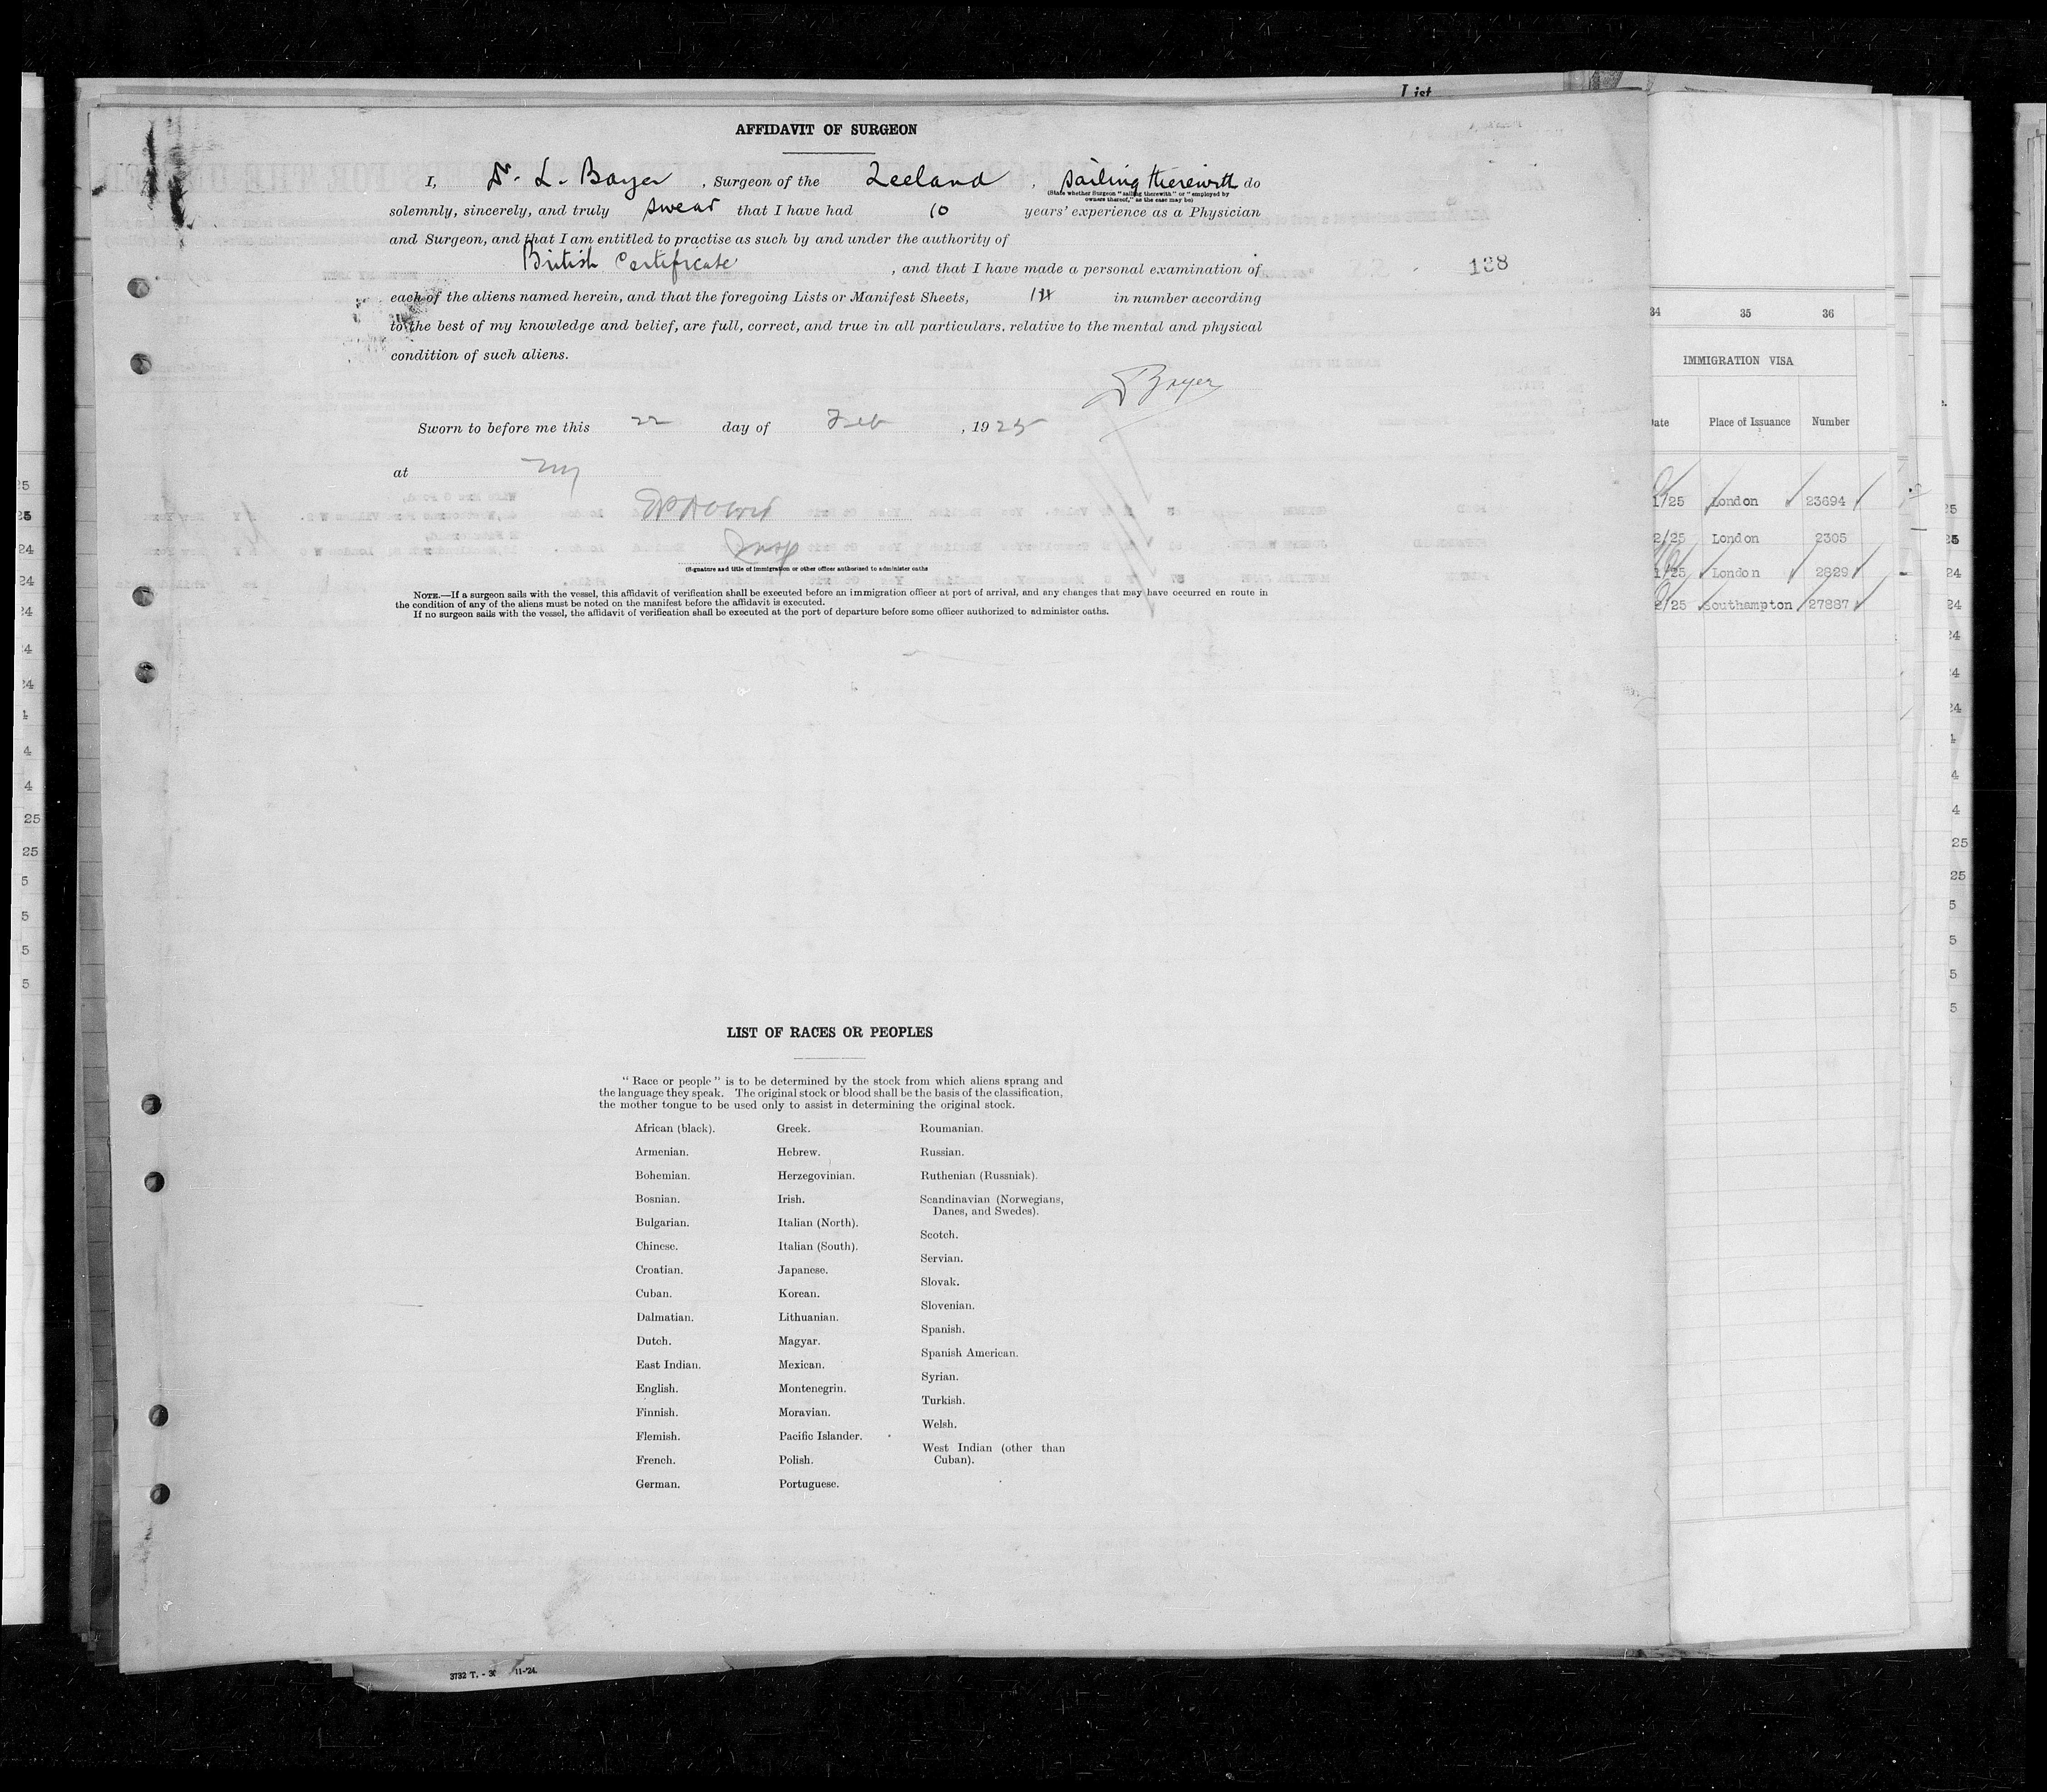 List
AFFIDAVIT OF SURGEON
I, Dr. L. Bayer, Surgeon of the Zeeland, sailing therewith do
(State whether Surgeon "sailing therewith" or "employed by
owners thereof," as the case may be)
solemnly, sincerely, and truly swear that I have had 10 years' experience as a Physician
and Surgeon, and that I am entitled to practise as such by and under the authority of
British Certificate, and that I have made a personal examination of
138
each of the aliens named herein, and that the foregoing Lists or Manifest Sheets, in number according
to the best of my knowledge and belief, are full, correct, and true in all particulars, relative to the mental and physical
condition of such aliens.
Bayer
Sworn to before me this 22 day of Feb, 1925
at NY
Insp
(Signature and title of immigration or other officer authorized to administer oaths
NOTE.—If a surgeon sails with the vessel, this affidavit of verification shall be executed before an immigration officer at port of arrival, and any changes that may have occurred en route in
the condition of any of the aliens must be noted on the manifest before the affidavit is executed.
If no surgeon sails with the vessel, the affidavit of verification shall be executed at the port of departure before some officer authorized to administer oaths.
LIST OF RACES OR PEOPLES
"Race or people" is to be determined by the stock from which aliens sprang and
the language they speak. The original stock or blood shall be the basis of the classification,
the mother tongue to be used only to assist in determining the original stock.
African (black).
Armenian.
Bohemian.
Bosnian.
Bulgarian.
Chinese.
Croatian.
Cuban.
Dalmatian.
Dutch.
East Indian.
English.
Finnish.
Flemish.
French.
German.
Greek.
Hebrew.
Herzegovinian.
Irish.
Italian (North).
Italian (South).
Japanese.
Korean.
Lithuanian.
Magyar.
Mexican.
Montenegrin.
Moravian.
Pacific Islander.
Polish.
Portuguese.
Roumanian.
Russian.
Ruthenian (Russniak).
Scandinavian (Norwegians,
Danes, and Swedes).
Scotch.
Servian.
Slovak.
Slovenian.
Spanish.
Spanish American.
Syrian.
Turkish.
Welsh.
West Indian (other than
Cuban).
3732 T. - 11-'24.
34 35 36
IMMIGRATION VISA
Date Place of Issuance Number
1/25 London 23694
2/25 London 2305
1/25 London 2829
2/25 Southampton 27887